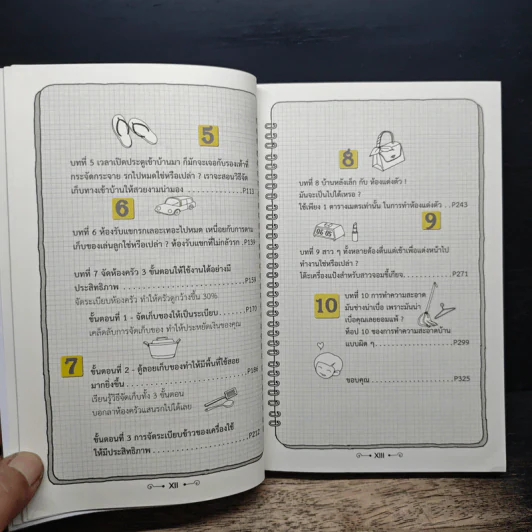 5
บทที่ 5 เวลาเปิดประตูเข้าบ้านมา ก็มักจะเจอกับรองเท้าที่
กระจัดกระจาย รกไปหมดใช่หรือเปล่า ? เราจะสอนวิธีจัด
เก็บทางเข้าบ้านให้สวยงามน่ามอง
6
บทที่ 6 ห้องรับแขกรกเลอะเทอะไปหมด เหนื่อยกับการตาม
เก็บของเล่นลูกใช่หรือเปล่า ? ห้องรับแขกที่ไม่กลัวรก
บทที่ 7 จัดห้องครัว 3 ขั้นตอนให้ใช้งานได้อย่างมี
ประสิทธิภาพ
จัดระเบียบห้องครัว ทำให้ครัวดูกว้างขึ้น 30%
ขั้นตอนที่ 1 - จัดเก็บของให้เป็นระเบียบ
เคล็ดลับการจัดเก็บของ ทำให้ประหยัดเงินของคุณ
7
ขั้นตอนที่ 2 - ตู้ลอยเก็บของทำให้มีพื้นที่ใช้สอย
มากยิ่งขึ้น
เรียนรู้วิธีจัดเก็บทั้ง 3 ขั้นตอน
บอกลาห้องครัวแสนรกไปได้เลย
ขั้นตอนที่ 3 การจัดระเบียบข้าวของเครื่องใช้
ให้มีประสิทธิภาพ
XII
8
บทที่ 8 บ้านหลังเล็ก กับ ห้องแต่งตัว !
มันจะเป็นไปได้เหรอ ?
ใช้เพียง 1 ตารางเมตรเท่านั้น ในการทำห้องแต่งตัว . .P243
9
บทที่ 9 สาว ๆ ทั้งหลายต้องตื่นแต่เช้าเพื่อแต่งหน้าไป
ทำงานใช่หรือเปล่า ?
โต๊ะเครื่องแป้งสำหรับสาวจอมขี้เกียจ. . . . . . . . . . . . .P271
10
บทที่ 10 การทำความสะอาด
มันช่างน่าเบื่อ เพราะมันน่า
เบื่อคุณเลยยอมแพ้ ?
ท็อป 10 ของการทำความสะอาดบ้าน
แบบผิด ๆ. . . . . . . . . . . . . . . . . . . . . . .P299
ขอบคุณ . . . . . . . . . . . . . . . . . . . . . . .P325
XIII